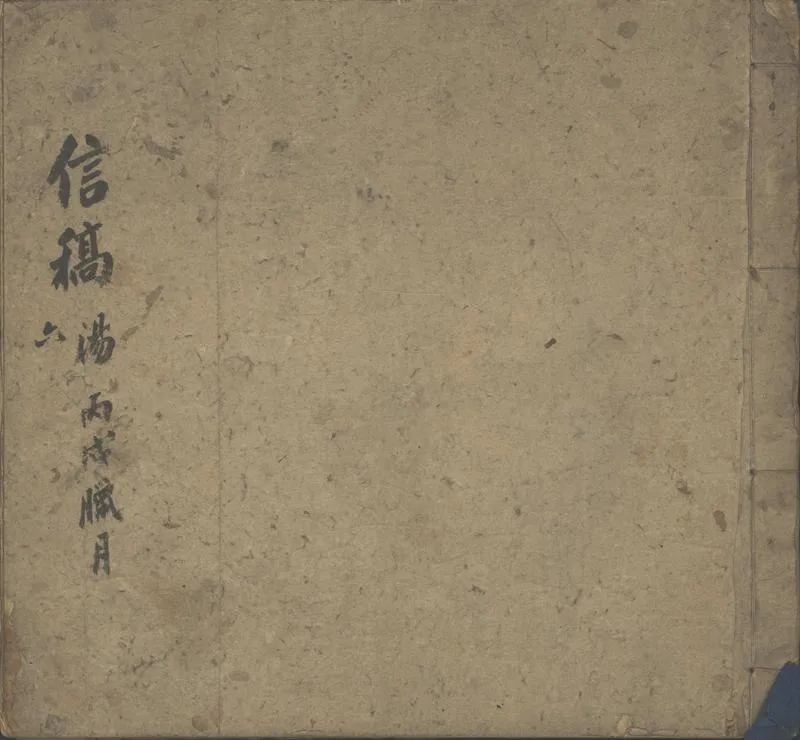 信稿
湯 丙戌臘月
六